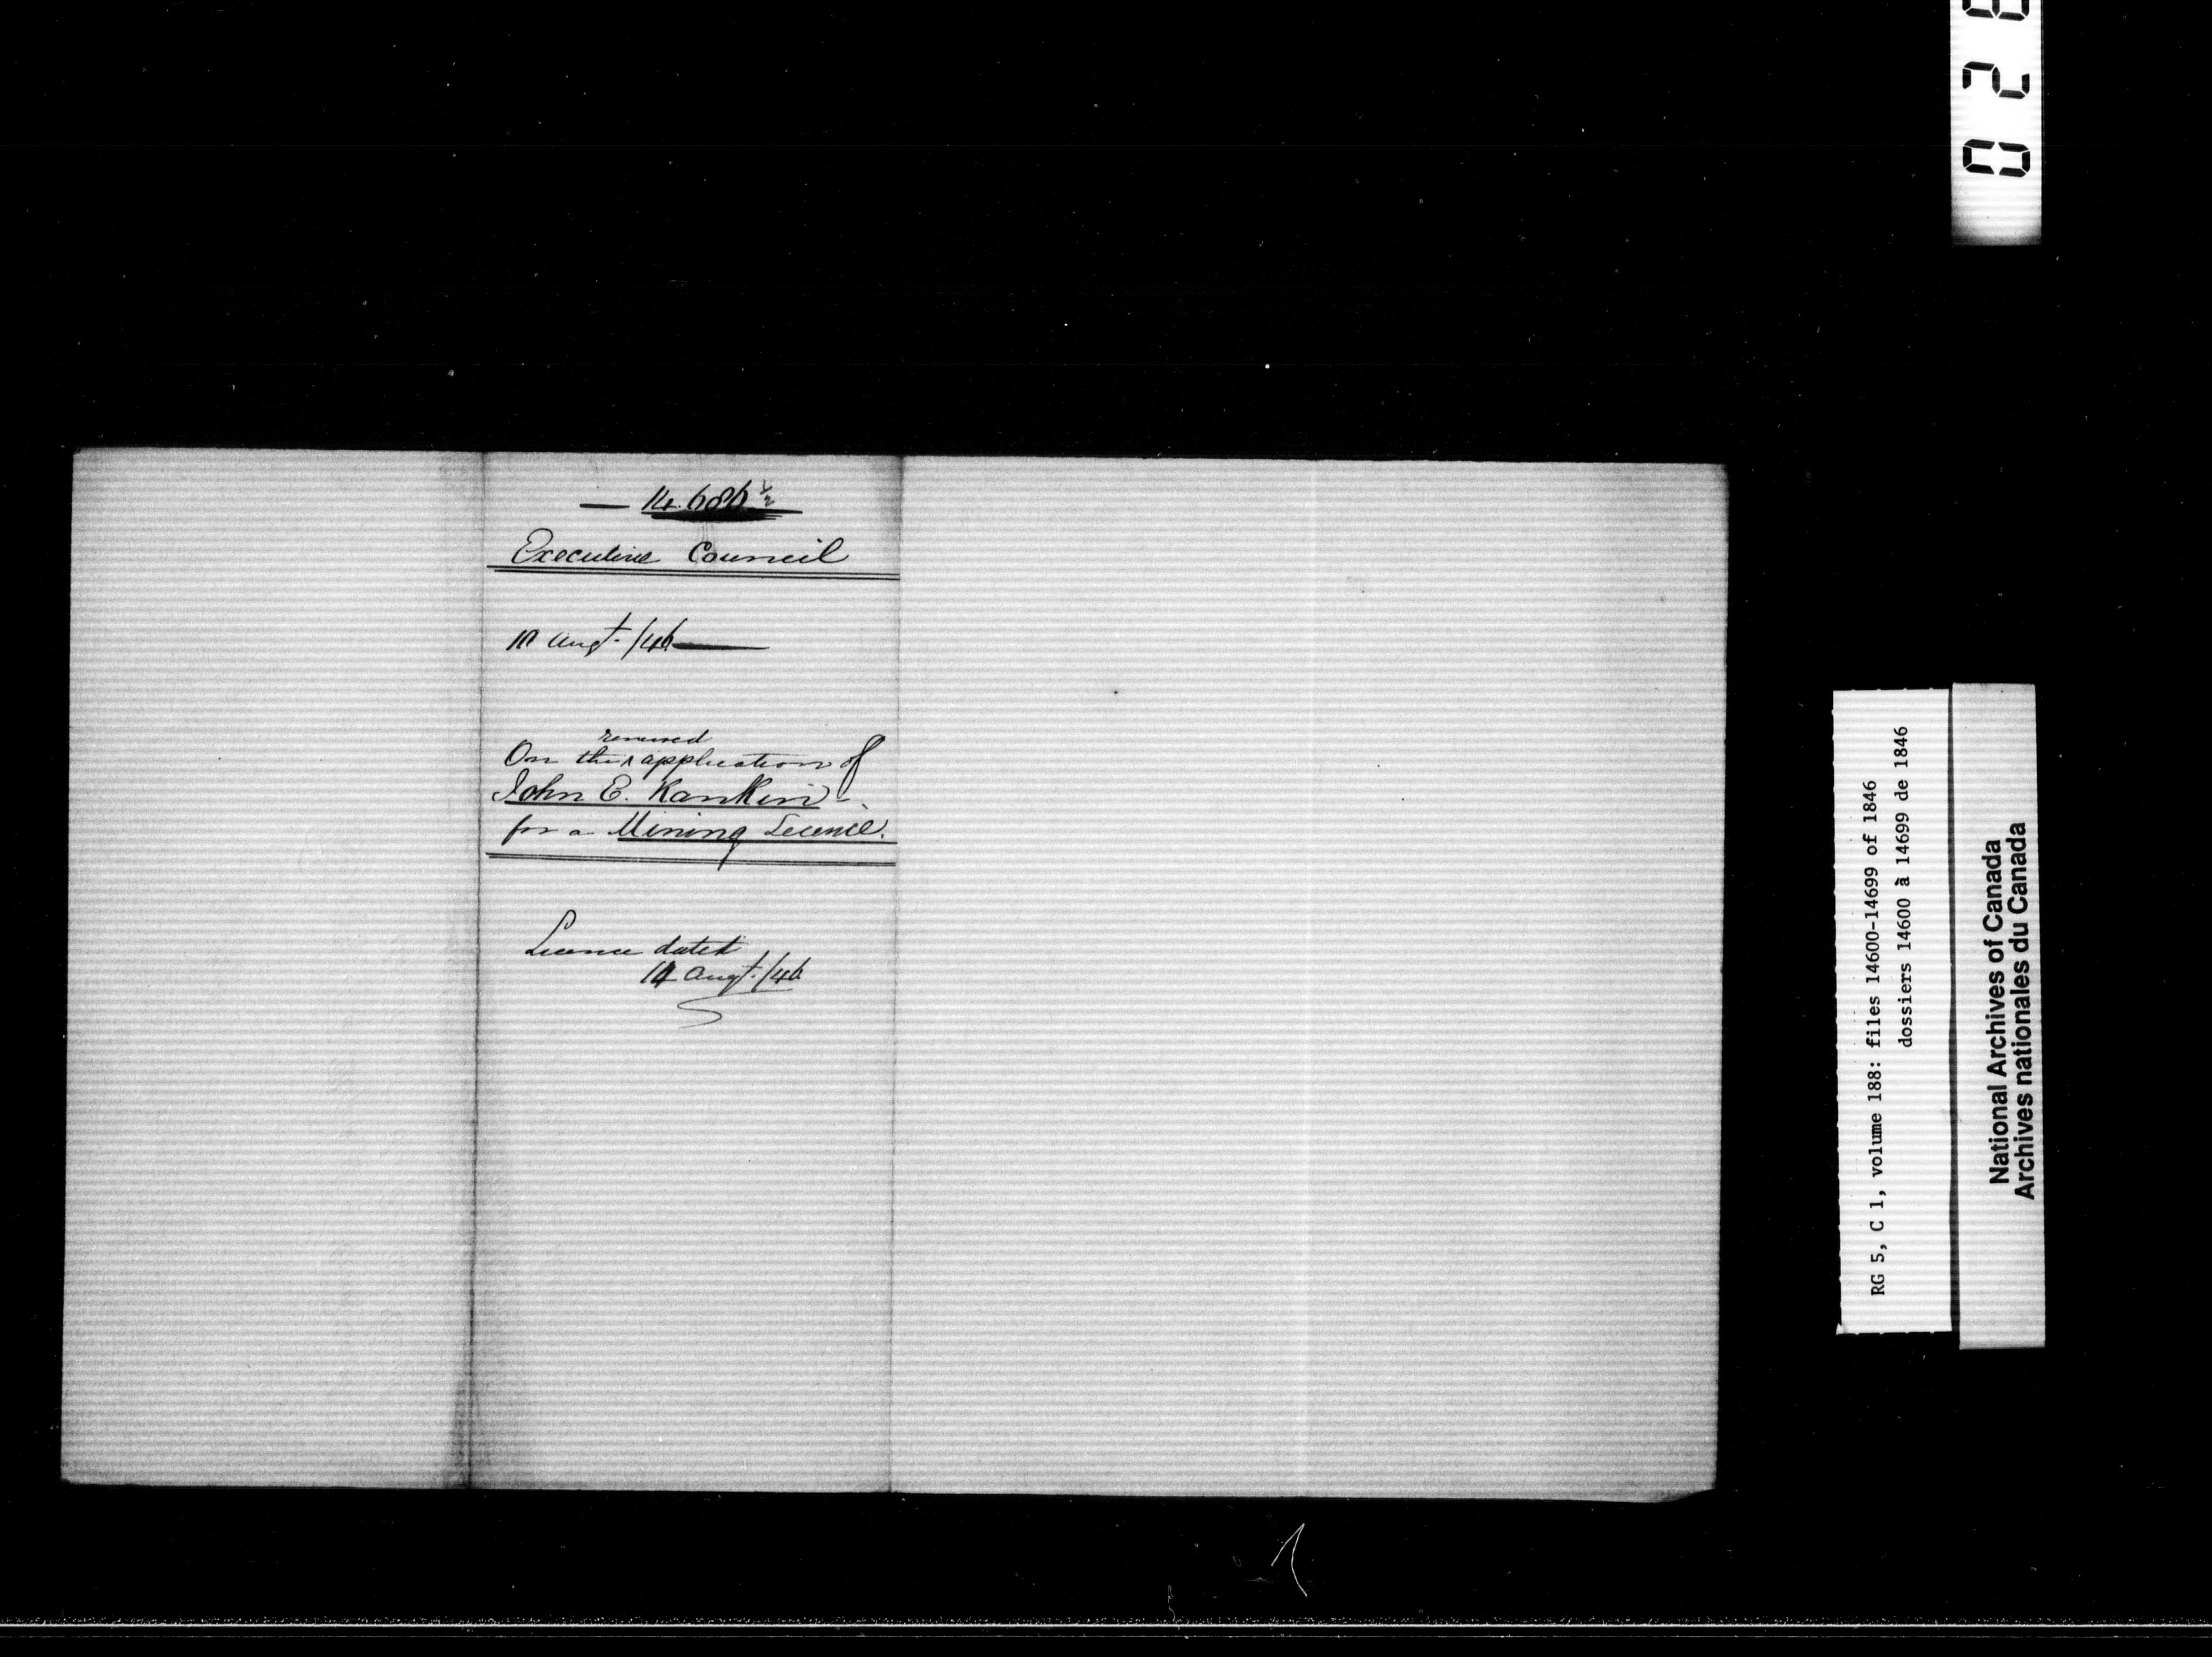 — 14.686 ½
Executive Council
10 Augt. /46
renewed
On the ^ application of
John E. Rankin
for a Mining Licence.
Licence dated
14 Augt. /46
RG 5, C 1, volume 188: files 14600-14699 of 1846
dossiers 14600 à 14699 de 1846
National Archives of Canada
Archives nationales du Canada